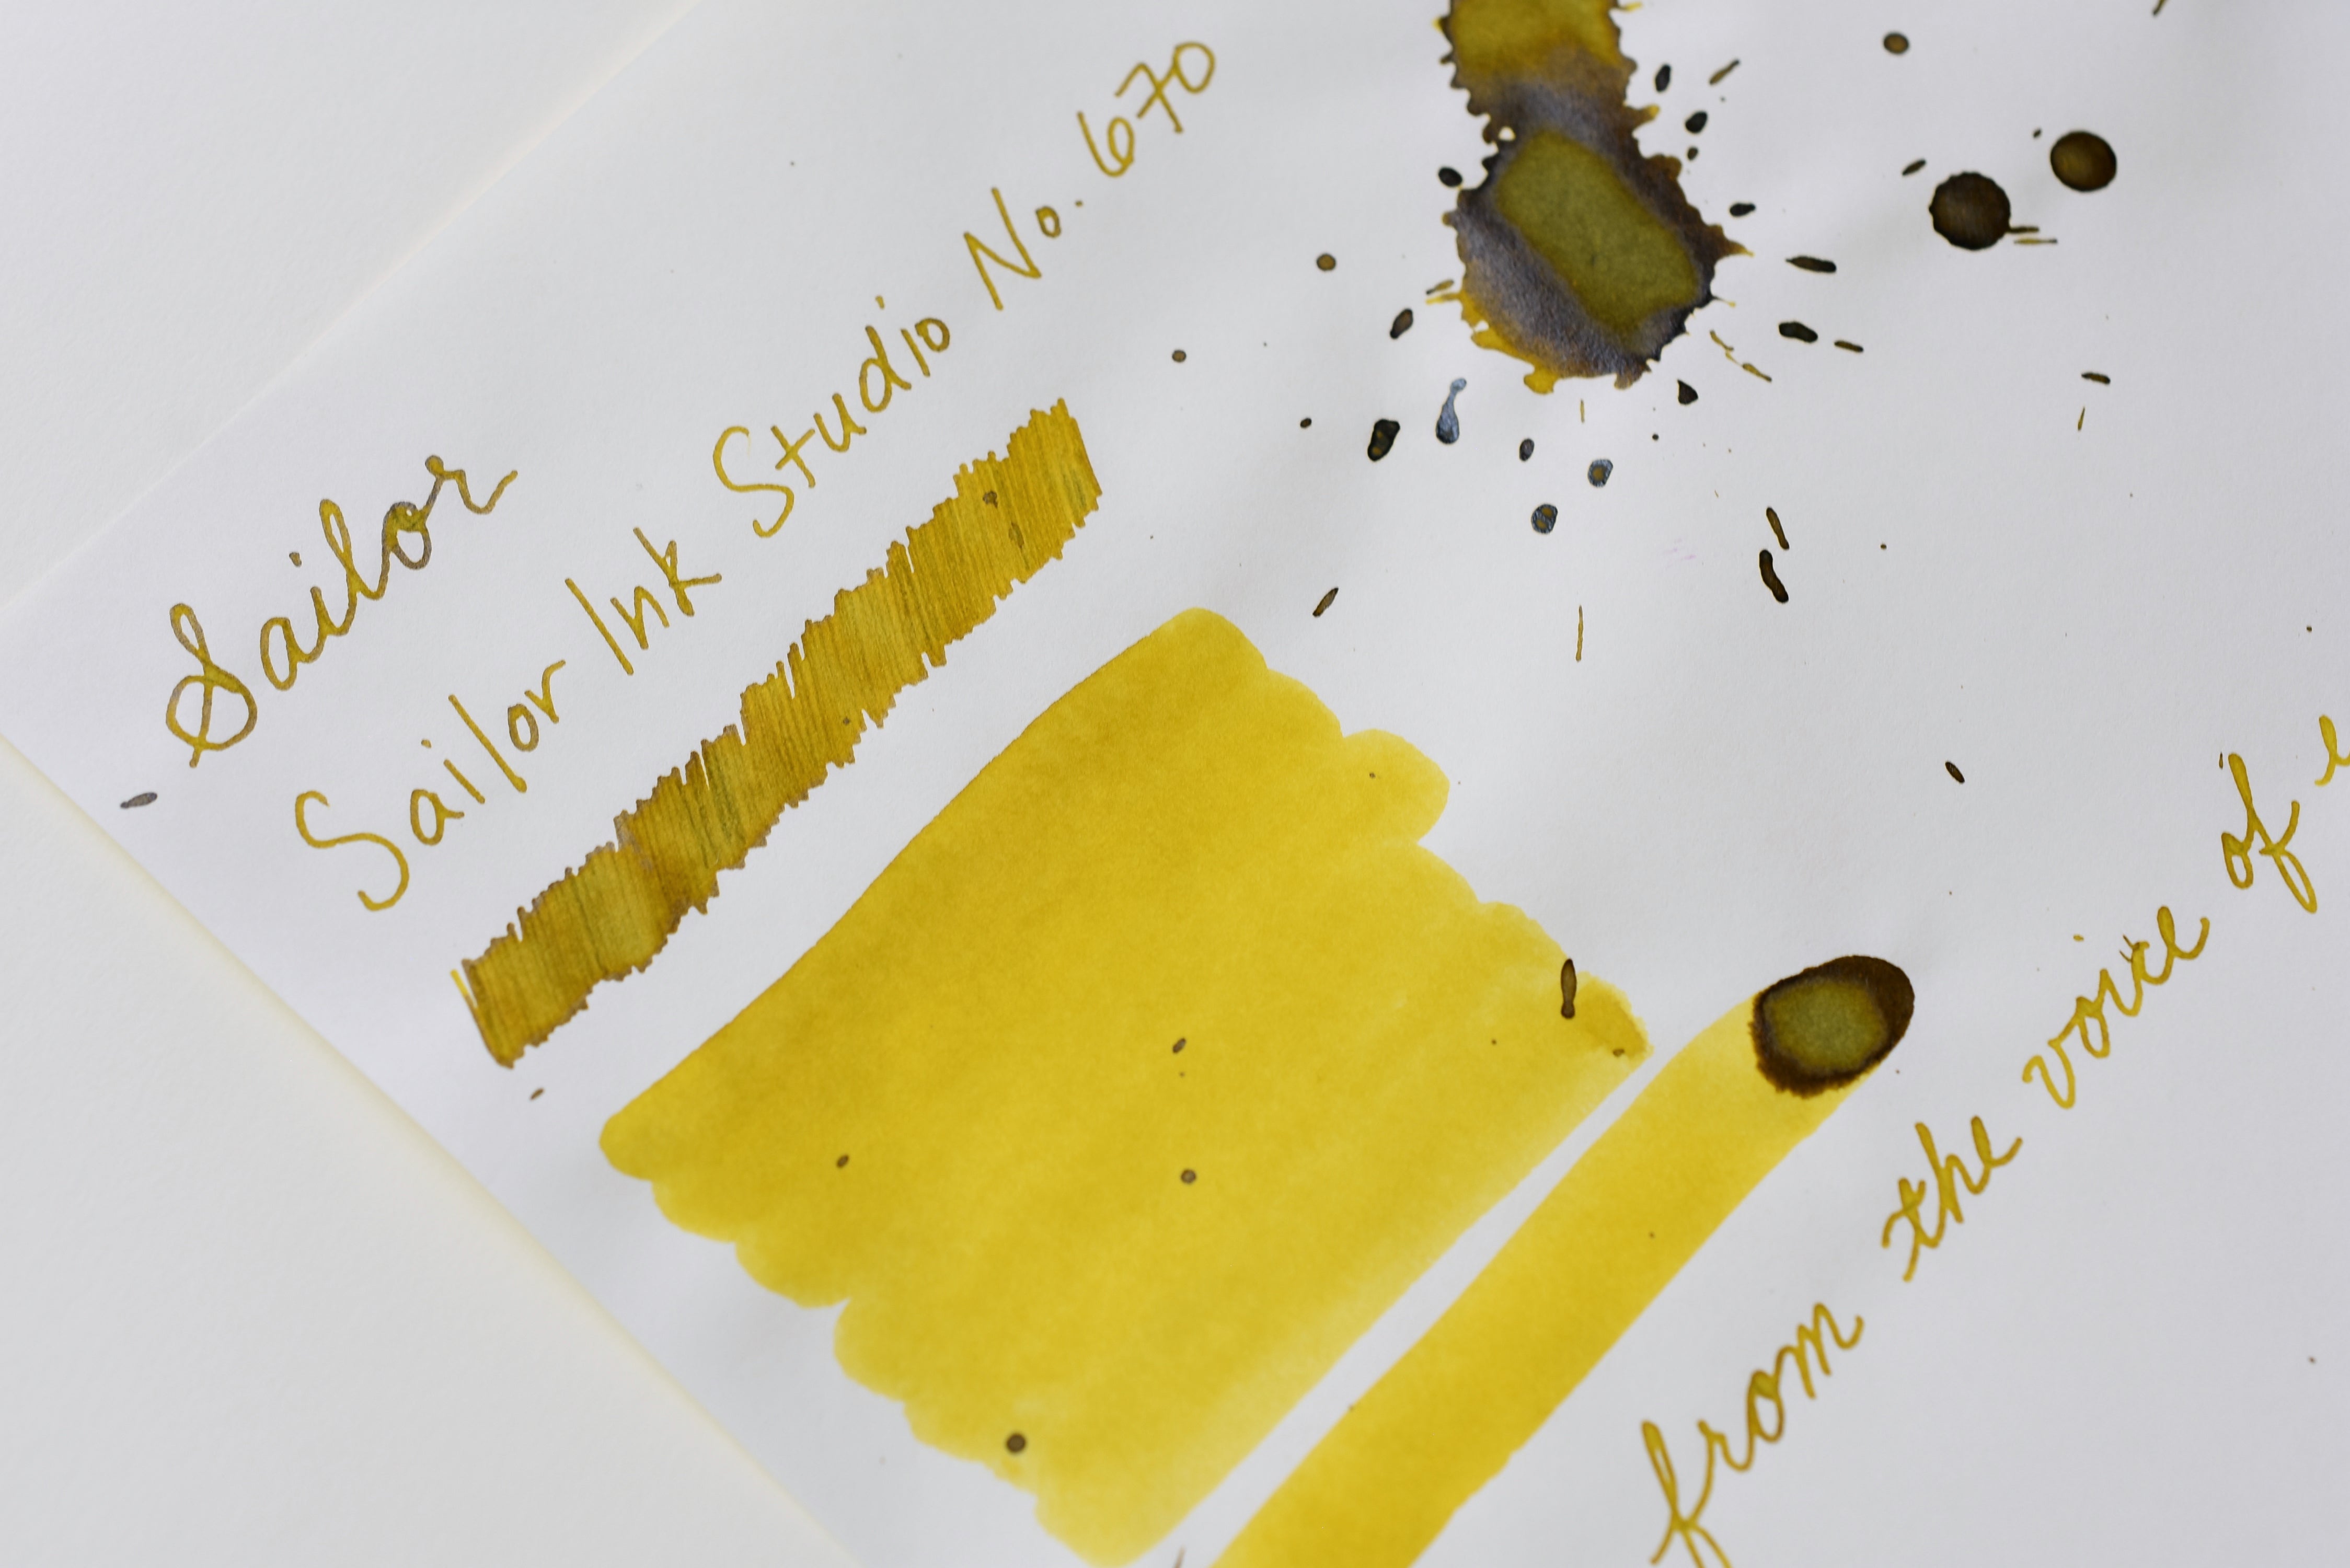 Sailor
Sailor Ink Studio No. 670
from the voice of